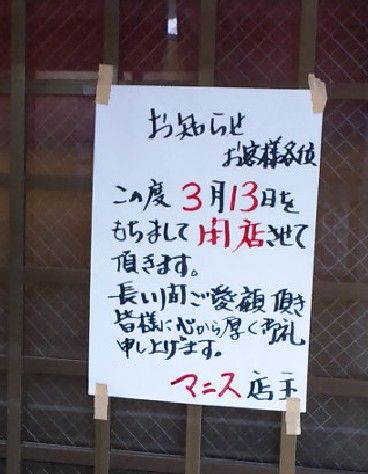 お知らせ
お客様各位
この度3月13日を
もちまして閉店させて
頂きます。
長い间ご愛顧頂き
皆様に心から厚く御礼
申し上げます。
マニス店主